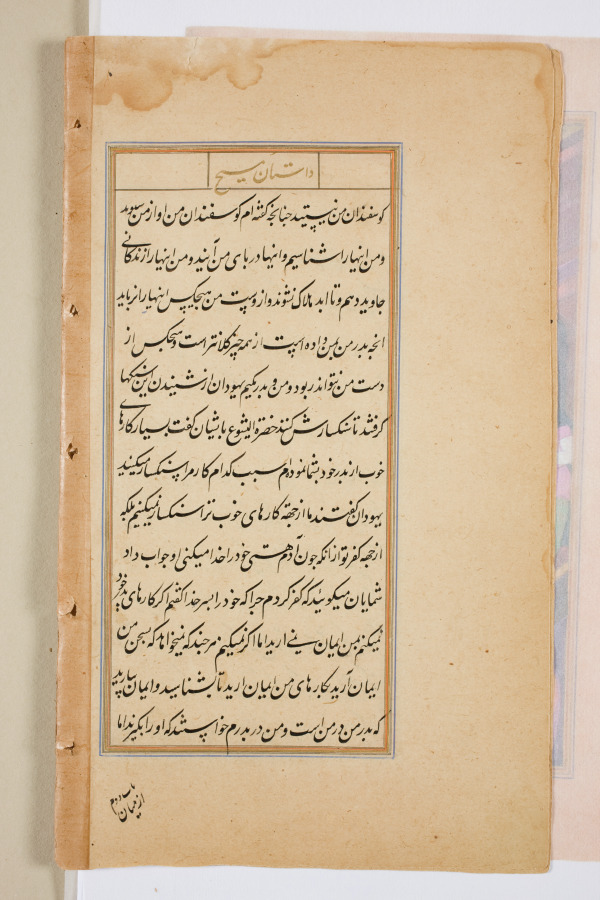 داستان مسیح
کوسفندان من نیستید چنانچه گفته ام کوسفندان من اواز من میشنوند
ومن انهارا شناسیم وانها در بای من آیند ومن انهارا زندکانی
جاوید دهم وتا ابد هلاک نشوند واز دست من هیچکس انهارا نرباید
انچه بدر من بمن داده است از همه چیز کلانتر است وهیچکس از
دست من نتواند ربود ومن و بدر یکیم یهودان از شنیدن این سنکها
کرفتند تا سنکسارش کنند حضرة ایشوع باایشان کفت بسیار کارهای
خوب از بدر خود بشما نمودم سبب کدام کار مرا سنکسار میکنید
یهودان کفتند ما از جهة کارهای خوب ترا سنکسار نمیکنیم بلکه
از جهة کفر تو از انکه چون آدم هستی خود را خدا میکنی او جواب داد
شمایان میکوئید که کفر کردم چرا که خود را بسر خدا کفتم اکر کارهای بدر خود
نمیکنم بمن ایمان نمی ارید اما اکر میکنم هر چند که نمیخواهد که بسخن من
ایمان آرید بکارهای من ایمان ارید تا بشناسید وایمان بیارید
که بدر من در من است ومن در بدرم خواستند که او را بکیرند اما
از میان